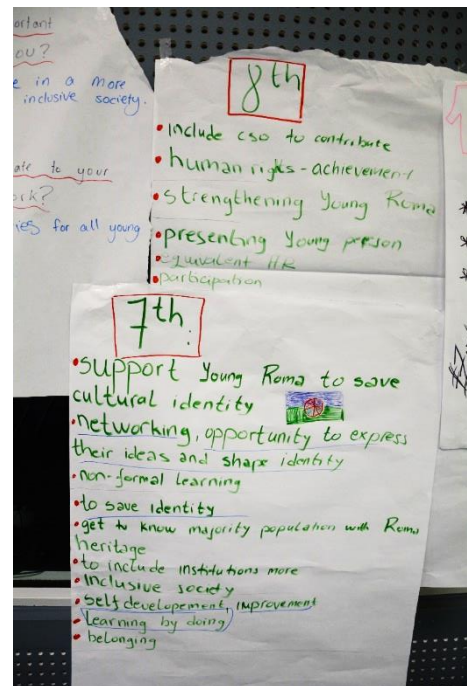 ortant
ou?
e in a more
inclusive society.
ate to your
ork?
ies for all young
8th
• include cso to contribute
• human rights - achievement
• strengthening Young Roma
• presenting Young person
• equivalent HR
• participation
7th.
• support Young Roma to save
cultural identity
• networking, opportunity to express
their ideas and shape identity
• non-formal learning
• to save identity
• get to know majority population with Roma
heritage
• to include institutions more
• inclusive society
• self developement, improvement
• learning by doing
• belonging